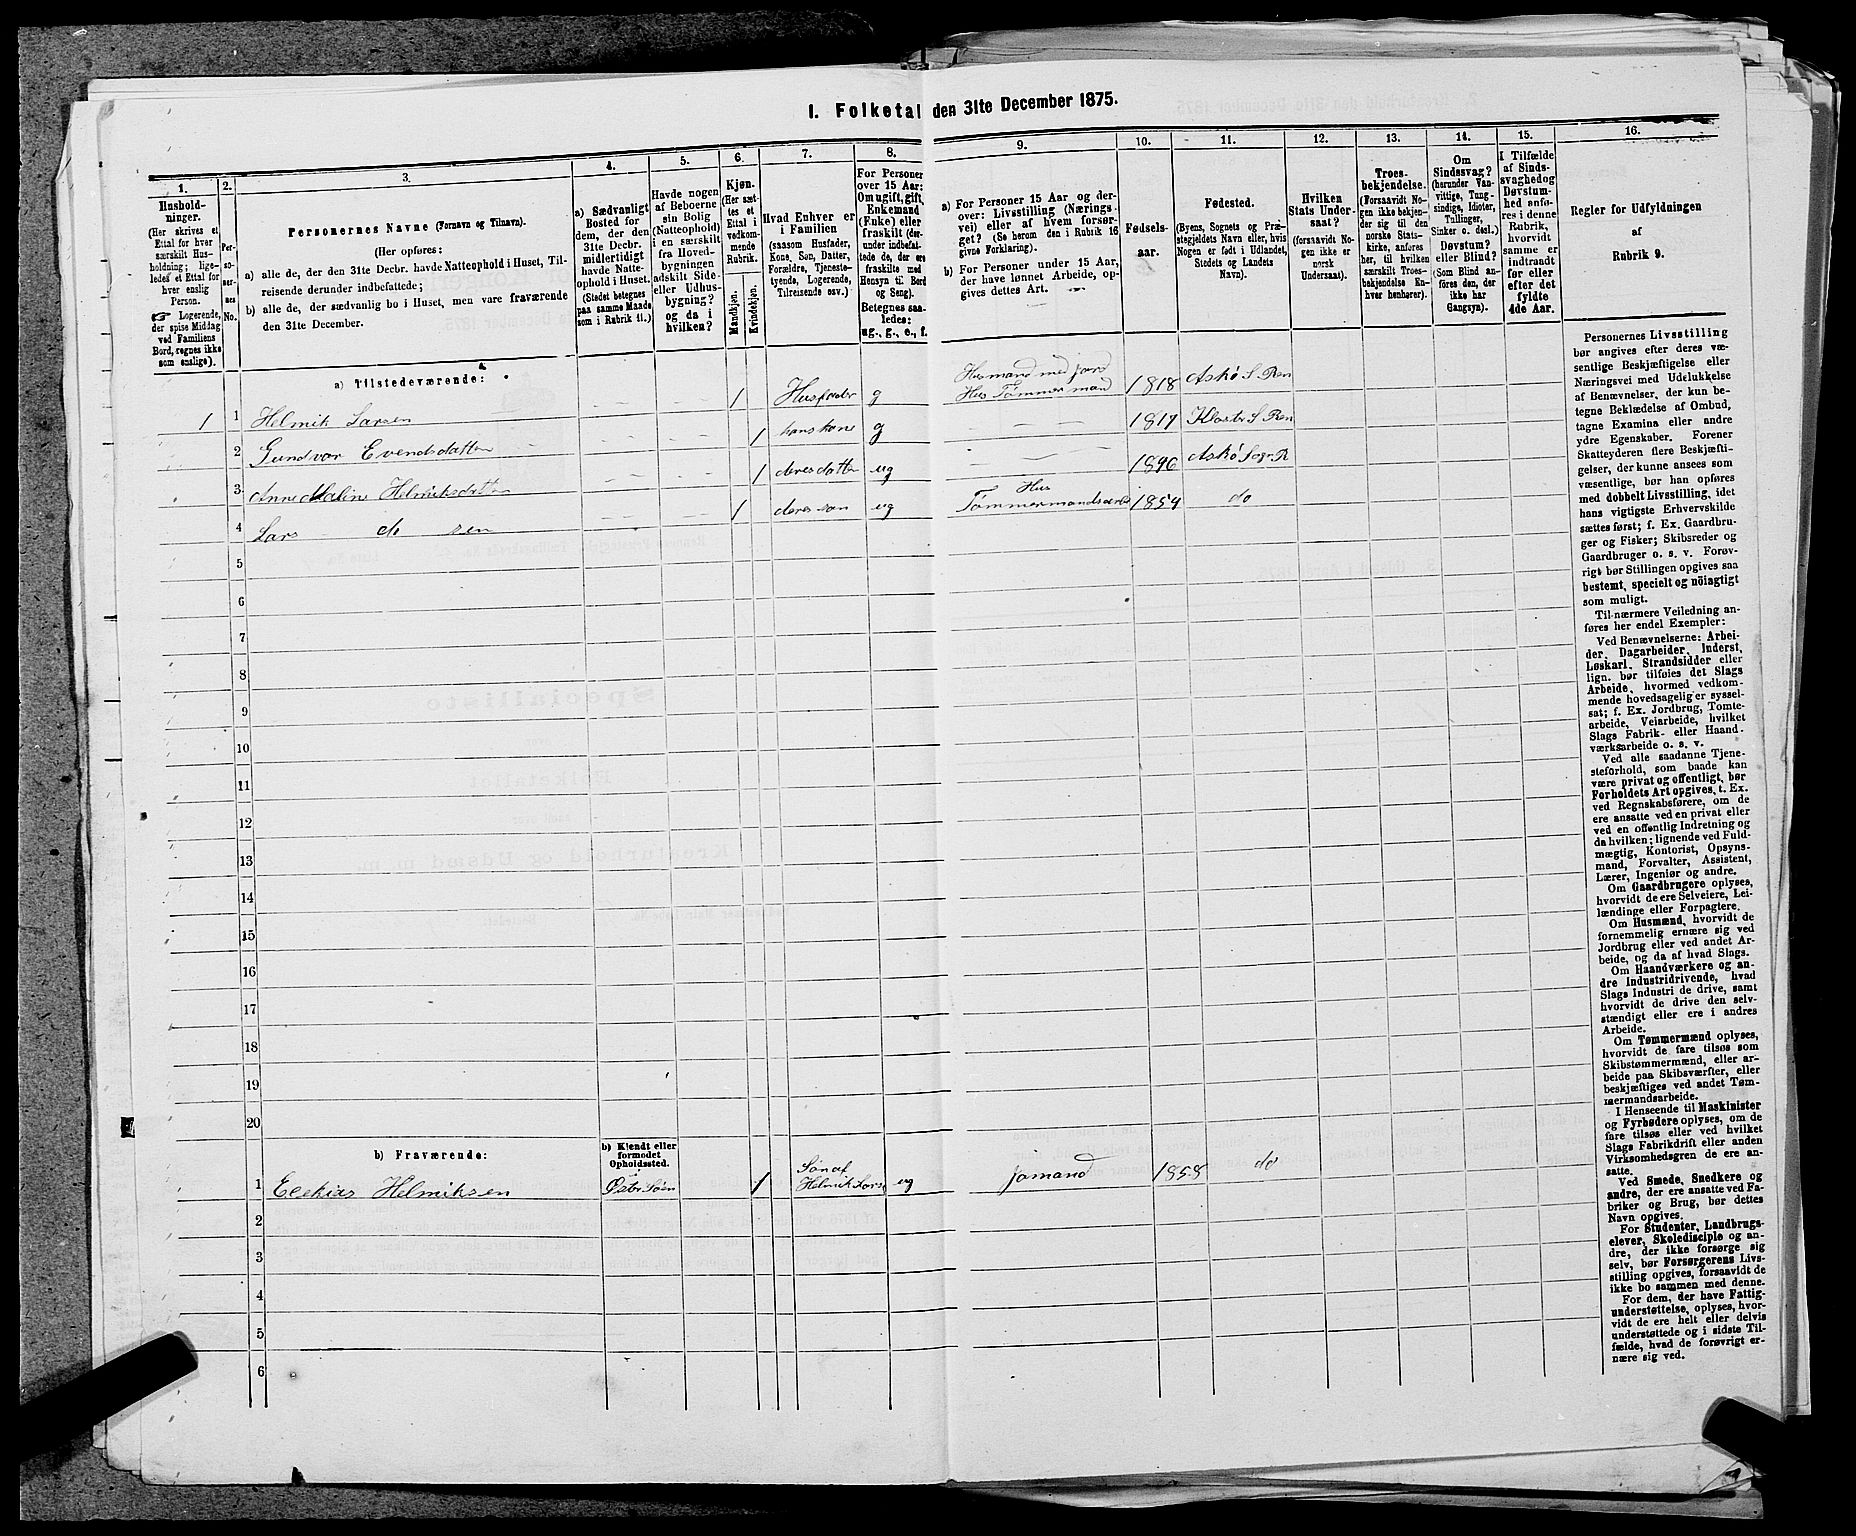 I. Folketal den 31te December 1875.
1. 2. 3. 4. 5. 6. 7. 8. 9. 10. 11. 12. 13. 14. 15. 16.
Hushold-
ninger.
(Her skrives et
Ettal for hver
særskilt Hus-
holdning; lige-
ledes et Ettal for
hver enslig
Person.
☞ Logerende,
der spise Middag
ved Familiens
Bord, regnes ikke
som enslige).
Per-
so-
ner-
nes
No.
Personernes Navne (Fornavn og Tilnavn).
(Her opføres:
a) alle de, der den 31te Decbr. havde Natteophold i Huset, Til-
reisende derunder indbefattede;
b) alle de, der sædvanlig bo i Huset, men vare fraværende
den 31te December.
a) Sædvanligt
Bosted for
dem, der den
31te Decbr.
midlertidigt
havde Natte-
ophold i Huset.
(Stedet betegnes
paa samme Maade
som i Rubrik 11.)
Havde nogen
af Beboerne
sin Bolig
(Natteophold)
i en særskilt
fra Hoved-
bygningen
adskilt Side-
eller Udhus-
bygning?
og da i
hvilken?
Kjøn.
(Her sæt-
tes et
Ettal i
vedkom-
mende
Rubrik.
Mandkjøn.
Kvindekjøn.
Hvad Enhver er
i Familien
(saasom Husfader,
Kone, Søn, Datter,
Forældre, Tjeneste-
tyende, Logerende,
Tilreisende osv.)
For Personer
over 15 Aar:
Om ugift, gift,
Enkemand
(Enke) eller
fraskilt (der-
under indbefat-
tede de, der ere
fraskilte med
Hensyn til Bord
og Seng).
Betegnes saa-
ledes:
ug., g., e., f.
a) For Personer 15 Aar og der-
over: Livsstilling (Nærings-
vei) eller af hvem forsør-
get? (Se herom den i Rubrik 16
givne Forklaring).
b) For Personer under 15 Aar,
der have lønnet Arbeide, op-
gives dettes Art.
Fødsels-
aar.
Fødested.
(Byens, Sognets og Præ-
stegjeldets Navn eller, hvis
Nogen er født i Udlandet,
Stedets og Landets
Navn).
Hvilken
Stats Under-
saat?
(forsaavidt No-
gen ikke er
norsk
Undersaat).
Troes-
bekjendelse.
(Forsaavidt No-
gen ikke bekjen-
der sig til den
norske Stats-
kirke, anføres
her, til hvilken
særskilt Troes-
bekjendelse En-
hver henhører).
Om
Sindssvag?
(herunder Van-
vittige, Tung-
sindige, Idioter,
Tullinger,
Sinker o. desl.)
Døvstum?
eller Blind?
(Som Blind an-
føres den, der
ikke har
Gangsyn).
I Tilfælde
af Sinds-
svaghed og
Døvstum-
hed anfø-
res i denne
Rubrik,
hvorvidt
samme er
indtraadt
før eller
efter det
fyldte
4de Aar.
Regler for Udfyldningen
af
Rubrik 9.
a) Tilstedeværende:
1 1 Helmik Larsen 1 Husfader g Husmand med jord Hus Tømmermand 1818 Askø S Ren
2 Gundvor Evendsdatter 1 hans kone g 1817 Kloster S Ren
3 Anne Malin Helmiksdatter 1 deres datter ug 1846 Askø Sogn R
4 Lars do sen 1 deres søn ug Hus Tømmermands 1854 do
5
6
7
8
9
10
11
12
13
14
15
16
17
18
19
20
b) Fraværende:
b) Kjendt eller
formodet
Opholdssted.
1 Ecekias Helmiksen Østersøen 1 Søn af Helmik Larsen ug Sømand 1858 do
2
3
4
5
6
Personernes Livsstilling
bør angives efter deres væ-
sentlige Beskjæftigelse eller
Næringsvei med Udelukkelse
af Benævnelser, der kun be-
tegne Beklædelse af Ombud,
tagne Examina eller andre
ydre Egenskaber. Forener
Skatteyderen flere Beskjæfti-
gelser, der kunne ansees som
væsentlige, bør han opføres
med dobbelt Livsstilling, idet
hans vigtigste Erhvervskilde
sættes først; f. Ex. Gaardbru-
ger og Fisker; Skibsreder og
Gaardbruger o. s. v. Forøv-
rigt bør Stillingen opgives saa
bestemt, specielt og nöiagtigt
som muligt.
Til nærmere Veiledning an-
føres her endel Exempler:
Ved Benævnelserne: Arbei-
der, Dagarbeider, Inderst,
Løskarl, Strandsidder eller
lign. bør tilføies det Slags
Arbeide, hvormed vedkom-
mende hovedsagelig er syssel-
sat; f. Ex. Jordbrug, Tomte-
arbeide, Veiarbeide, hvilket
Slags Fabrik- eller Haand-
værksarbeide o. s. v.
Ved alle saadanne Tjene-
steforhold, som baade kan
være privat og offentligt, bør
Forholdets Art opgives, t. Ex.
ved Regnskabsførere, om de
ere ansatte ved en privat eller
ved en offentlig Indretning og
da hvilken; lignende ved Fuld-
mægtig, Kontorist, Opsyns-
mand, Forvalter, Assistent,
Lærer, Ingeniør og andre.
Om Gaardbrugere oplyses,
hvorvidt de ere Selveiere, Lei-
lændinge eller Forpagtere.
Om Husmænd, hvorvidt de
fornemmelig ernære sig ved
Jordbrug eller ved andet Ar-
beide, og da af hvad Slags.
Om Haandværkere og an-
dre Industridrivende, hvad
Slags Industri de drive, samt
hvorvidt de drive den selv-
stændigt eller ere i andres
Arbeide.
Om Tømmermænd oplyses,
hvorvidt de fare tilsøs som
Skibstømmermænd, eller ar-
beide paa Skibsværfter, eller
beskjæftiges ved andet Tøm-
mermandsarbeide.
I Henseende til Maskinister
og Fyrbødere oplyses, om de
fare tilsøs eller ved hvilket
Slags Fabrikdrift eller anden
Virksomhedsgren de ere an-
satte.
Ved Smede, Snedkere og
andre, der ere ansatte ved Fa-
briker og Brug, bør dettes
Navn opgives.
For Studenter, Landbrugs-
elever, Skoledisciple og an-
dre, der ikke forsørge sig
selv, bør Forsørgerens Livs-
stilling opgives, forsaavidt de
ikke bo sammen med denne.
For dem, der have Fattig-
understøttelse, oplyses, hvor-
vidt de ere helt eller delvis
understøttede og i sidste Til-
fælde, hvad de forøvrigt er-
nære sig ved.